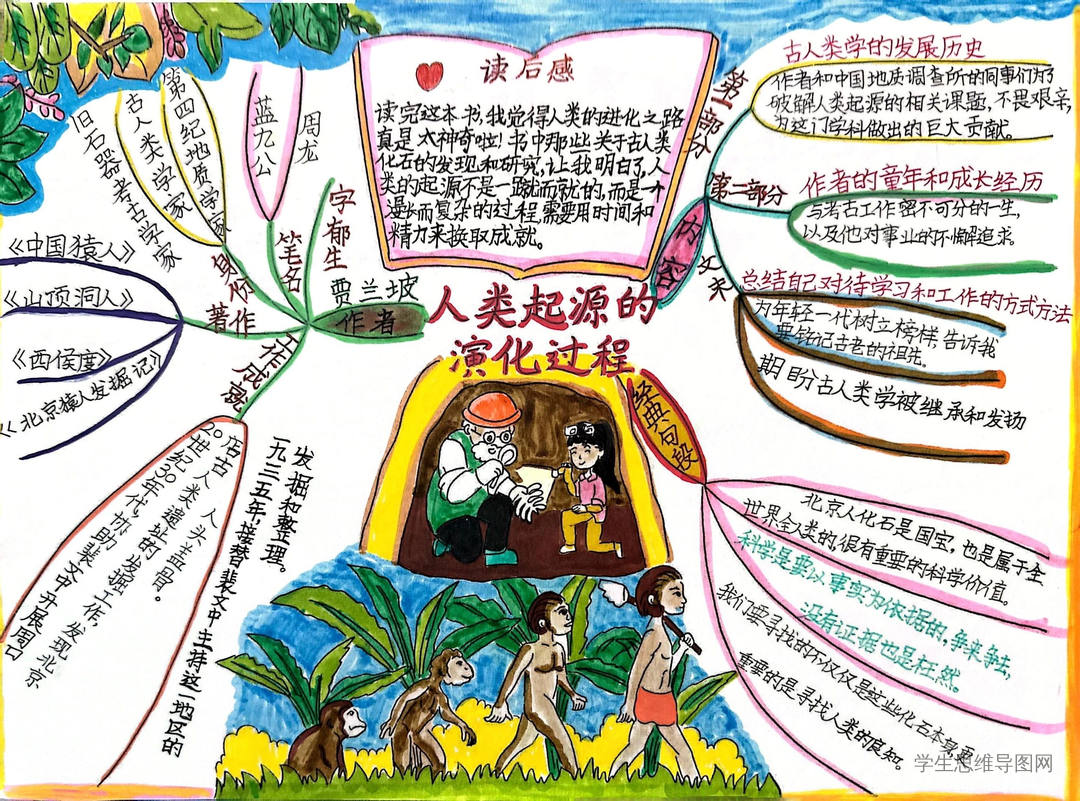 读后感
读完这本书,我觉得人类的进化之路
真是太神奇啦!书中那些关于古人类
化石的发现和研究,让我明白了,人
类的起源不是一蹴而就的,而是一个
漫长而复杂的过程,需要用时间和
精力来换取成就。
人类起源的
演化过程
作者
贾兰坡
字郁生
笔名
周龙
蓝九公
身份
第四纪地质学家
古人类学家
旧石器考古学家
著作
《中国猿人》
《山顶洞人》
《西侯度》
《北京猿人发掘记》
工作成就
20世纪30年代,协助裴文中开展周口
店古人类遗址的发掘工作,发现北京
人头盖骨。
一九三五年,接替裴文中主持这一地区的
发掘和整理。
内容
第一部分
古人类学的发展历史
作者和中国地质调查所的同事们为了
破解人类起源的相关课题,不畏艰亲,
为这门学科做出的巨大贡献。
第二部分
作者的童年和成长经历
与考古工作密不可分的一生,
以及他对事业的不懈追求。
总结自己对待学习和工作的方式方法
为年轻一代树立榜样 告诉我
要铭记古老的祖先。
期盼古人类学被继承和发扬
经典句段
北京人化石是国宝,也是属于全
世界全人类的,很有重要的科学价值。
科学是要以事实为依据的,争来争去,
没有证据也是枉然。
我们要寻找的不仅仅是这些化石本身,更
重要的是寻找人类的良知。
学生思维导图网